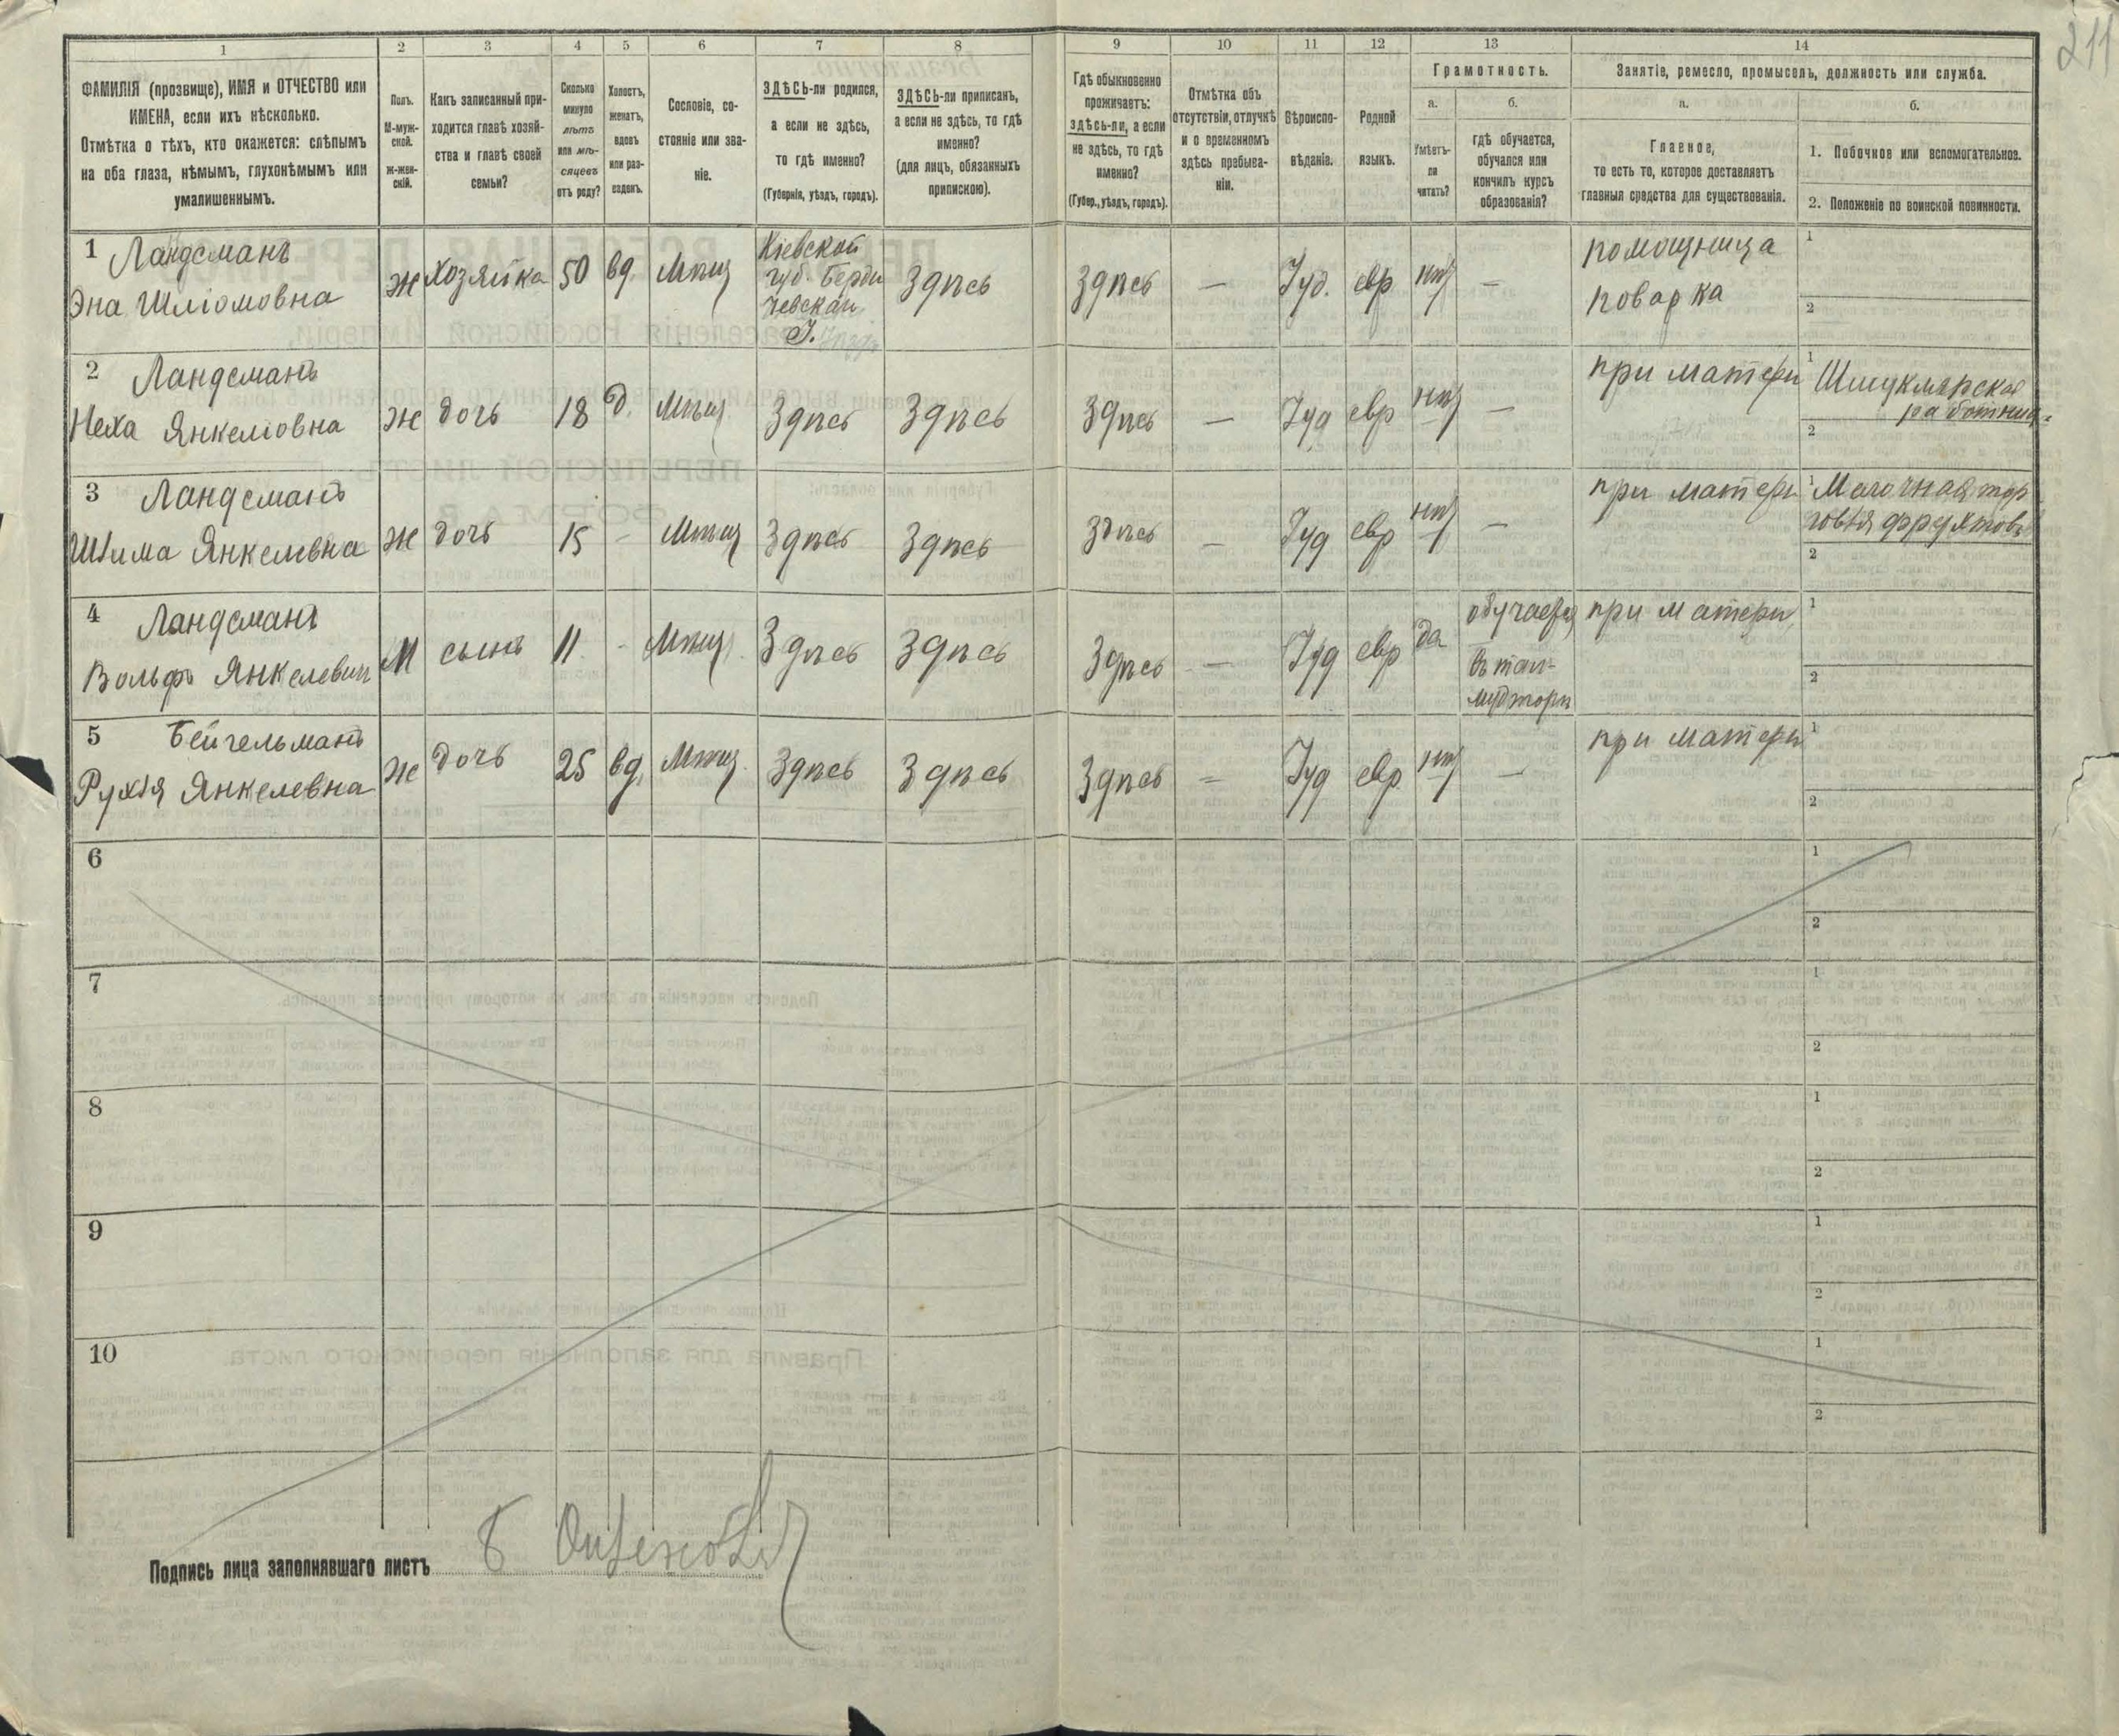 211
1 2 3 4 5 6 7 8 9 10 11 12 13 14
ФАМИЛІЯ (прозвище), ИМЯ и ОТЧЕСТВО или
ИМЕНА, если ихъ нѣсколько.
Отмѣтка о тѣхъ, кто окажется: слѣпымъ
на оба глаза, нѣмымъ, глухонѣмымъ или
умалишеннымъ.
Полъ.
М-муж-
ской.
Ж-жен-
скій.
Какъ записанный при-
ходится главѣ хозяй-
ства и главѣ своей
семьи?
Сколько
минуло
лѣтъ
или мѣ-
сяцевъ
отъ роду?
Холостъ,
женатъ,
вдовъ
или раз-
веденъ.
Сословіе, со-
стояніе или зва-
ніе.
ЗДѢСЬ-ли родился,
а если не здѣсь,
то гдѣ именно?
(Губернія, уѣздъ, городъ).
ЗДѢСЬ-ли приписанъ,
а если не здѣсь, то гдѣ
именно?
(для лицъ, обязанныхъ
припискою).
Гдѣ обыкновенно
проживаетъ:
здѣсь-ли, а если
не здѣсь, то гдѣ
именно?
(Губер., уѣздъ, городъ).
Отмѣтка объ
отсутствіи, отлучкѣ
и о временномъ
здѣсь пребыва-
ніи.
Вѣроиспо-
вѣданіе.
Родной
языкъ.
Грамотность.
а.
Умѣетъ-
ли
читать?
б.
гдѣ обучается,
обучался или
кончилъ курсъ
образованія?
Занятіе, ремесло, промыселъ, должность или служба.
а.
Главное,
то есть то, которое доставляетъ
главныя средства для существованія.
б.
1. Побочное или вспомогательное.
2. Положеніе по воинской повинности.
1 Ландсманъ
Эна Шліомовна
ж
Хозяйка
50
вд.
Мѣщ
Кіевской
губ. Берди
чевскаго
Здѣсь
Здѣсь
—
Іуд.
евр
нѣт
—
помощница
поварка
1
2
2 Ландсманъ
Неха Янкеліовна
ж
дочь
18
д.
Мѣщ
Здѣсь
Здѣсь
Здѣсь
—
Іуд
евр
нѣт
—
при матери
1 Шмуклярская
работниц.
2
3 Ландсманъ
Шима Янкелевна
ж
дочь
15
-
Мѣщ
Здѣсь
Здѣсь
Здѣсь
—
Іуд
евр
нѣт
—
при матери
1 Мелочная тор
говля фруктовъ
2
4 Ландсманъ
Вольфъ Янкелевич
М
сынъ
11
-
Мѣщ
Здѣсь
Здѣсь
Здѣсь
—
Іуд
евр
да
обучается
въ тал-
мудторѣ
при матери
1
2
5 Бейгельманъ
Рухля Янкелевна
ж
дочь
25
вд.
Мѣщ
Здѣсь
Здѣсь
Здѣсь
—
Іуд
евр
нѣт
—
при матери
1
2
6
1
2
7
1
2
8
1
2
9
1
2
10
1
2
Подпись лица заполнявшаго листъ